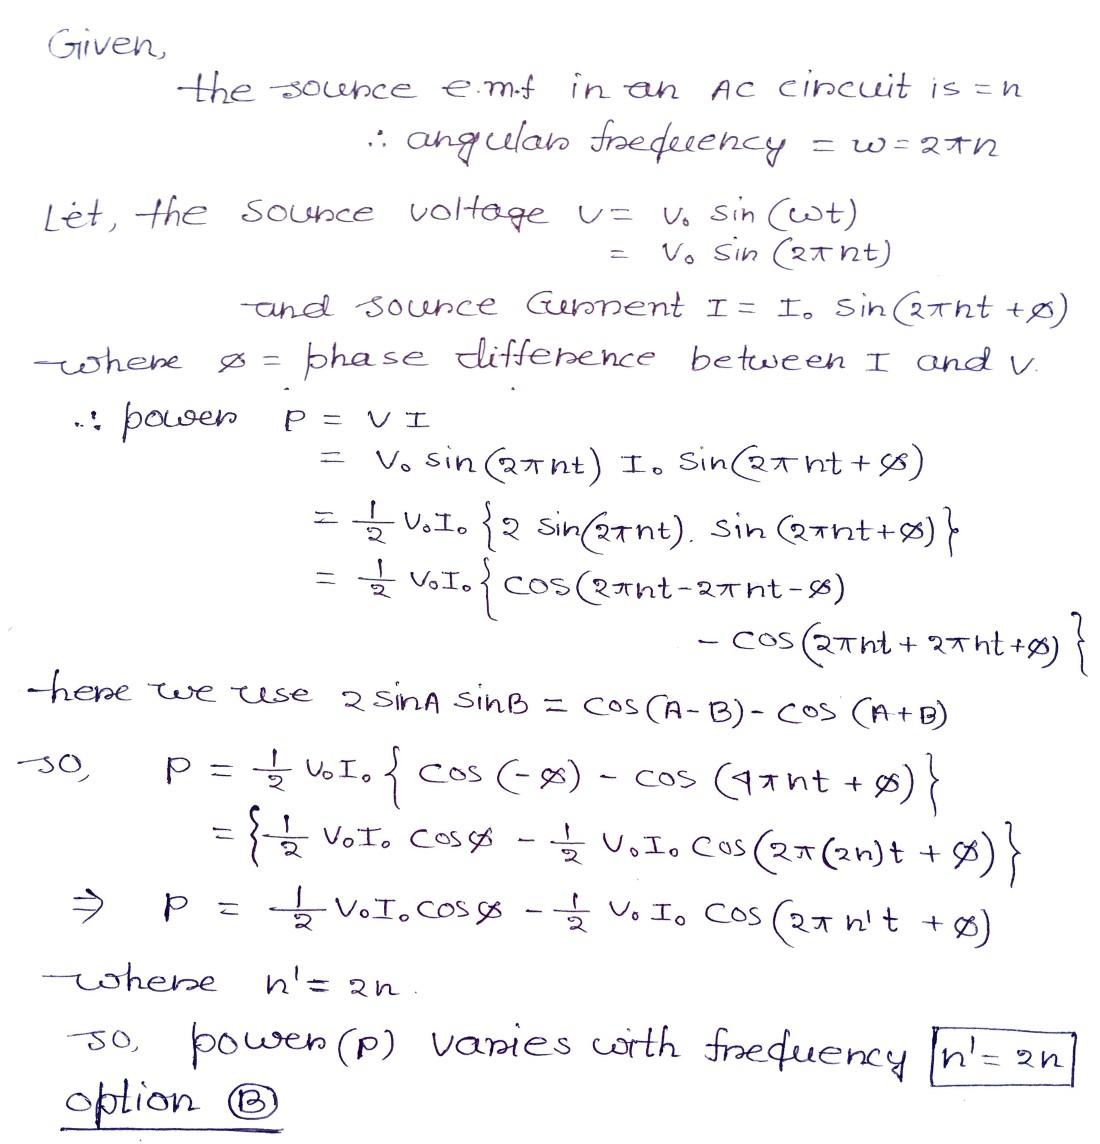 Given,
the source e.m.f in an AC circuit is = n
∴ angular frequency = w = 2πn
Let, the source voltage v = v₀ sin (wt)
= v₀ sin (2πnt)
and source Current I = I₀ sin (2πnt + ø)
where ø = phase difference between I and v.
∴ power P = VI
= V₀ sin (2πnt) I₀ sin (2πnt + ø)
= 1/2 V₀I₀ {2 sin(2πnt). sin (2πnt+ø)}
= 1/2 V₀I₀ { cos (2πnt-2πnt-ø)
- cos (2πnt + 2πnt +ø) }
here we use 2 sinA sinB = cos (A-B) - cos (A+B)
so, P = 1/2 V₀I₀ { cos (-ø) - cos (4πnt + ø) }
= { 1/2 V₀I₀ cosø - 1/2 V₀I₀ cos (2π(2n)t + ø) }
⇒ P = 1/2 V₀I₀ cosø - 1/2 V₀I₀ cos (2πn't + ø)
where n' = 2n.
so, power (P) varies with frequency n' = 2n
option Ⓑ